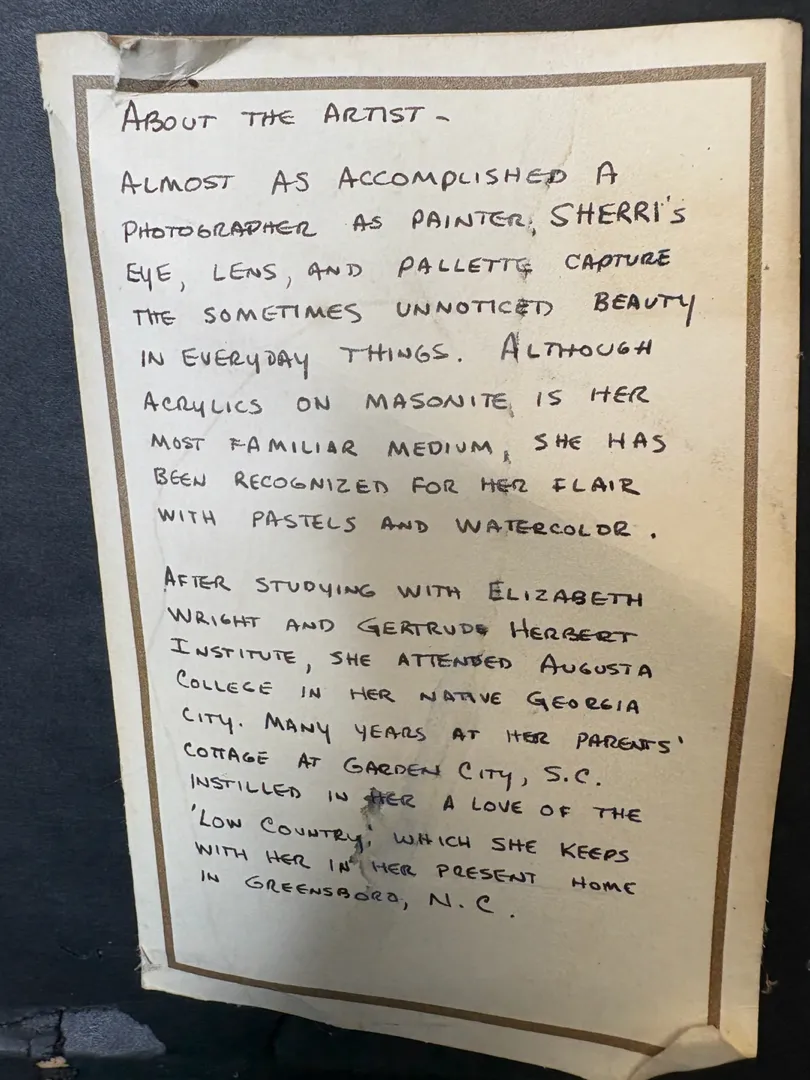 ABOUT THE ARTIST -
ALMOST AS ACCOMPLISHED A
PHOTOGRAPHER AS PAINTER, SHERRI'S
EYE, LENS, AND PALLETTE CAPTURE
THE SOMETIMES UNNOTICED BEAUTY
IN EVERYDAY THINGS. ALTHOUGH
ACRYLICS ON MASONITE IS HER
MOST FAMILIAR MEDIUM, SHE HAS
BEEN RECOGNIZED FOR HER FLAIR
WITH PASTELS AND WATERCOLOR.
AFTER STUDYING WITH ELIZABETH
WRIGHT AND GERTRUDE HERBERT
INSTITUTE, SHE ATTENDED AUGUSTA
COLLEGE IN HER NATIVE GEORGIA
CITY. MANY YEARS AT HER PARENTS'
COTTAGE AT GARDEN CITY, S.C.
INSTILLED IN HER A LOVE OF THE
'LOW COUNTRY,' WHICH SHE KEEPS
WITH HER IN HER PRESENT HOME
IN GREENSBORO, N.C.